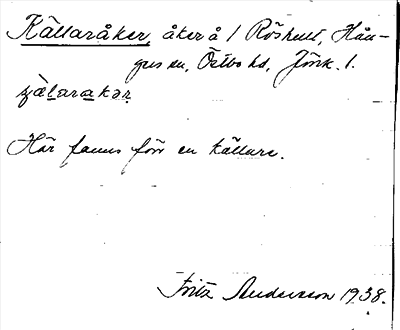 Källaråker, åker å 1 Röshult, Hån-
gers sn, Östbo hd, Jönk. l.
Här fanns förr en källare.
Fritz Andersson 1938.